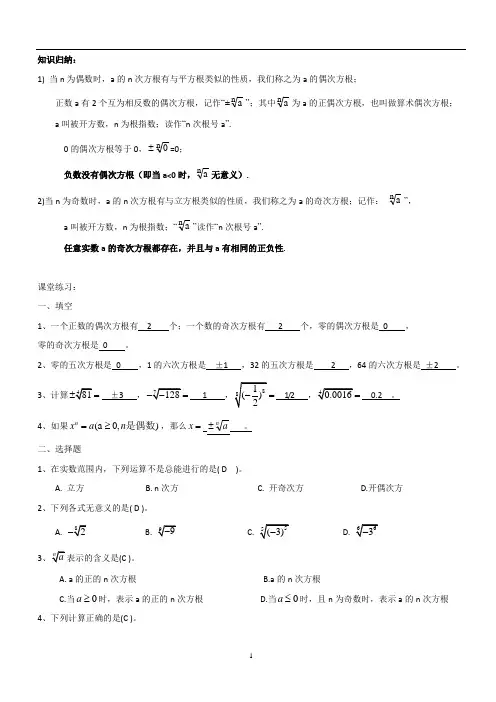 知识归纳:
1) 当 n 为偶数时，a 的 n 次方根有与平方根类似的性质，我们称之为 a 的偶次方根；
正数 a 有 2 个互为相反数的偶次方根，记作“±ⁿ√a ”；其中ⁿ√a 为 a 的正偶次方根，也叫做算术偶次方根；
a 叫被开方数，n 为根指数；读作“n 次根号 a”.
0 的偶次方根等于 0，±ⁿ√0 =0；
负数没有偶次方根（即当 a<0 时，ⁿ√a 无意义）.
2)当 n 为奇数时，a 的 n 次方根有与立方根类似的性质，我们称之为 a 的奇次方根；记作： ⁿ√a ”，
a 叫被开方数，n 为根指数；“ⁿ√a ”读作“n 次根号 a”.
任意实数 a 的奇次方根都存在，并且与 a 有相同的正负性.
课堂练习：
一、填空
1、一个正数的偶次方根有 2 个；一个数的奇次方根有 2 个，零的偶次方根是 0 ，
零的奇次方根是 0 。
2、零的五次方根是 0 ，1 的六次方根是 ±1 ，32 的五次方根是 2 ，64 的六次方根是 ±2 。
3、计算±⁴√81 = ±3 ，−⁷√−128 = 1 ，⁸√(−1/2)⁸ = 1/2 ，⁴√0.0016 = 0.2 。
4、如果 xⁿ = a(a ≥ 0, n是偶数) ，那么 x = ±ⁿ√a 。
二、选择题
1、在实数范围内，下列运算不是总能进行的是( D )。
A. 立方 B. n 次方 C. 开奇次方 D.开偶次方
2、下列各式无意义的是( D )。
A. −√2 B. √−9 C. √(−3) D. ⁶√−3⁶
3、ⁿ√a 表示的含义是(C )。
A. a 的正的 n 次方根 B.a 的 n 次方根
C.当 a ≥ 0 时，表示 a 的正的 n 次方根 D.当 a ≤ 0 时，且 n 为奇数时，表示 a 的 n 次方根
4、下列计算正确的是(C )。
1